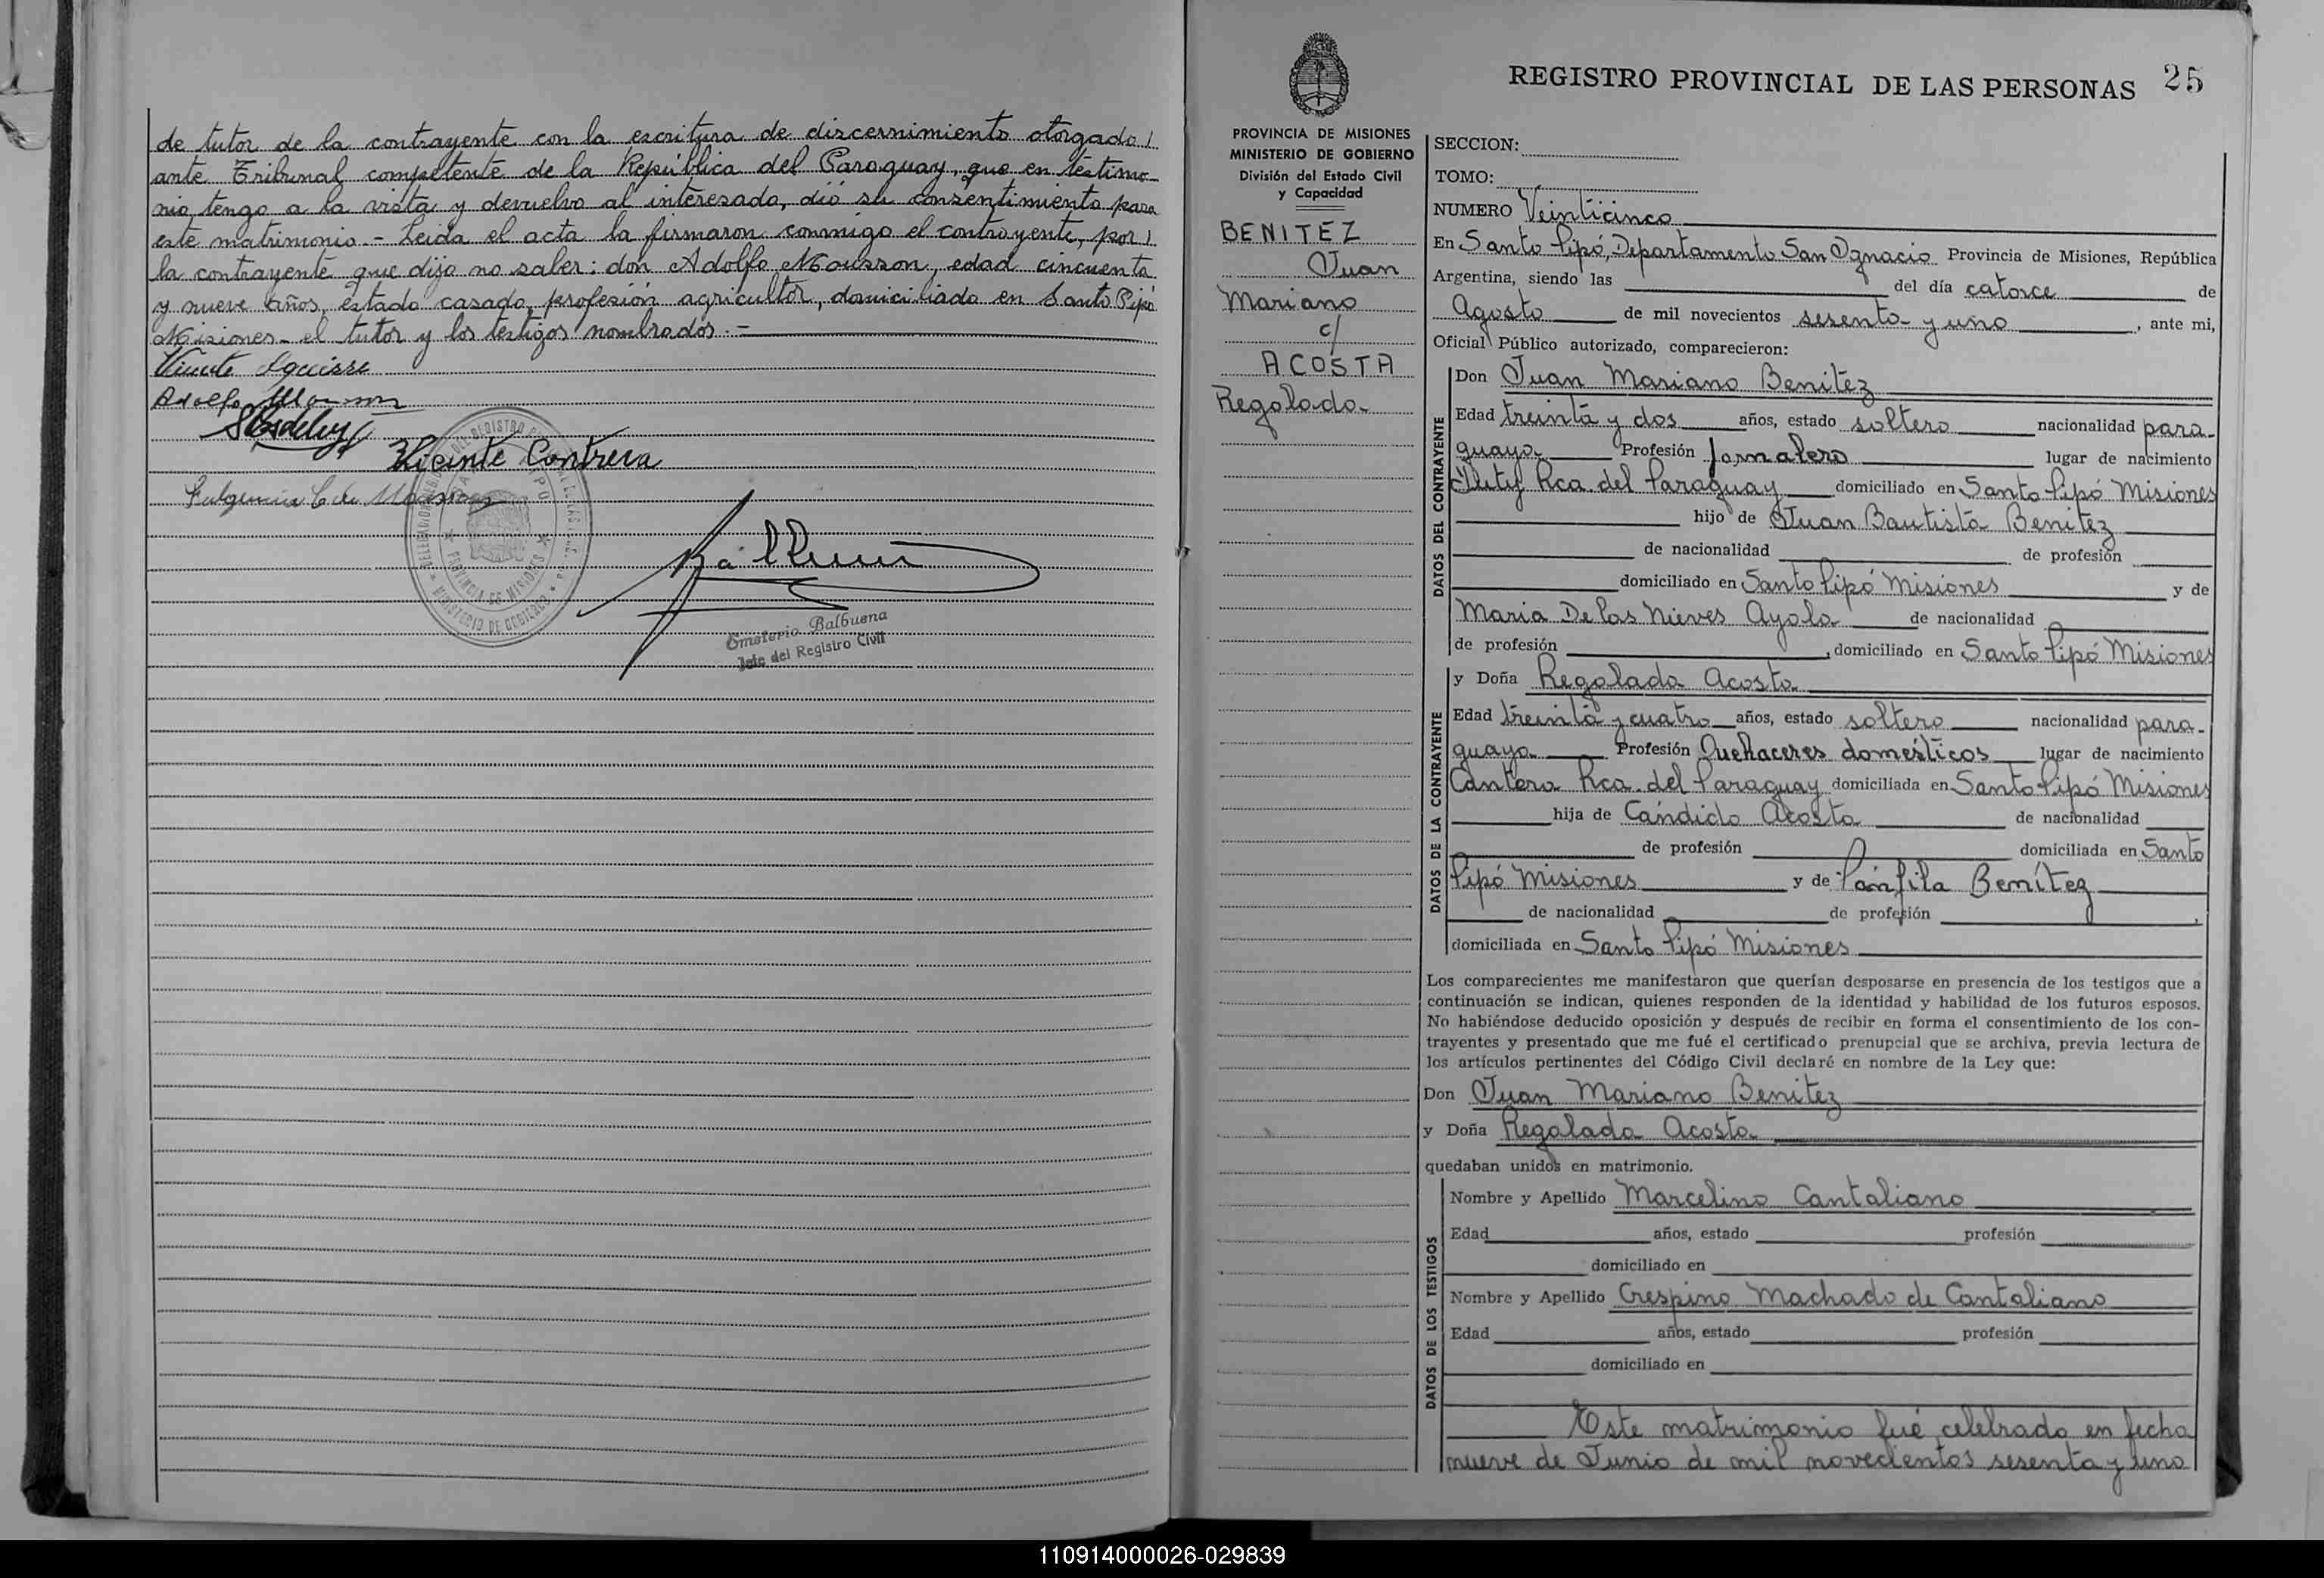 de tutor de la contrayente con la escritura de discernimiento otorgado
ante Tribunal competente de la República del Paraguay, que en testimo-
nio tengo a la vista y devuelvo al interesado, dió su consentimiento para
este matrimonio.- Leida el acta la firmaron conmigo el contrayente, por
la contrayente que dijo no saber: don Adolfo Mousson, edad cincuenta
y nueve años, estado casado, profesión agricultor, domiciliado en Santo Pipó
Misiones- el tutor y los testigos nombrados.-
Vicente Aguirre
Adolfo Mousson
Vicente Contrera
Fulgencia C de
PROVINCIA DE MISIONES
MINISTERIO DE GOBIERNO
Emeterio Balbuena
Jefe del Registro Civil
REGISTRO PROVINCIAL DE LAS PERSONAS 25
PROVINCIA DE MISIONES
MINISTERIO DE GOBIERNO
División del Estado Civil
y Capacidad
BENITEZ
Juan
Mariano
c/
ACOSTA
Regalada
SECCION:
TOMO:
NUMERO Veinticinco
En Santo Pipó, Departamento San Ignacio Provincia de Misiones, República
Argentina, siendo las del día catorce de
Agosto de mil novecientos sesenta y uno, ante mi,
Oficial Público autorizado, comparecieron:
DATOS DEL CONTRAYENTE
Don Juan Mariano Benitez
Edad treinta y dos años, estado soltero nacionalidad para-
guaya Profesión Jornalero lugar de nacimiento
Yuty Rca. del Paraguay domiciliado en Santo Pipó Misiones
hijo de Juan Bautista Benitez
de nacionalidad de profesión
domiciliado en Santo Pipó Misiones y de
Maria De las Nieves Ayala de nacionalidad
de profesión , domiciliado en Santo Pipó Misiones
DATOS DE LA CONTRAYENTE
y Doña Regalada Acosta
Edad treinta y cuatro años, estado soltera nacionalidad para-
guaya Profesión Quehaceres domésticos lugar de nacimiento
Cantera Rca. del Paraguay domiciliada en Santo Pipó Misiones
hija de Cándido Acosta de nacionalidad
de profesión domiciliada en Santo
Pipó Misiones y de Pánfila Benítez
de nacionalidad de profesión ,
domiciliada en Santo Pipó Misiones
Los comparecientes me manifestaron que querían desposarse en presencia de los testigos que a
continuación se indican, quienes responden de la identidad y habilidad de los futuros esposos.
No habiéndose deducido oposición y después de recibir en forma el consentimiento de los con-
trayentes y presentado que me fué el certificado prenupcial que se archiva, previa lectura de
los artículos pertinentes del Código Civil declaré en nombre de la Ley que:
Don Juan Mariano Benitez
y Doña Regalada Acosta
quedaban unidos en matrimonio.
DATOS DE LOS TESTIGOS
Nombre y Apellido Marcelino Cantaliano
Edad años, estado profesión
domiciliado en
Nombre y Apellido Crespina Machado de Cantaliano
Edad años, estado profesión
domiciliado en
Este matrimonio fué celebrado en fecha
nueve de Junio de mil novecientos sesenta y uno
110914000026-029839